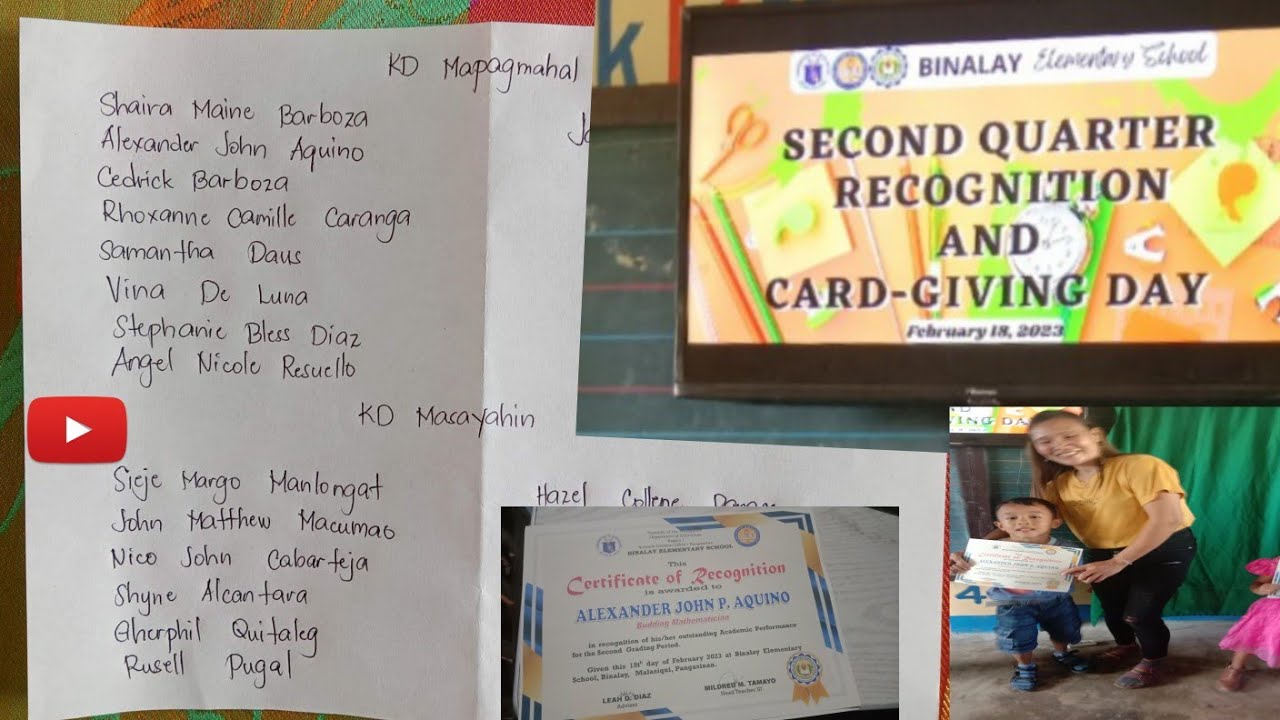 KD Mapagmahal
Shaira Maine Barboza
Alexander John Aquino
Cedrick Barboza
Rhoxanne Camille Caranga
Samantha Daus
Vina De Luna
Stephanie Bless Diaz
Angel Nicole Resuello
KD Masayahin
Sieje Margo Manlongat
John Matthew Macumao
Nico John Cabarteja
Shyne Alcantara
Gherphil Quitaleg
Rusell Pugal
Hazel Collene
BINALAY Elementary School
SECOND QUARTER
RECOGNITION
AND
CARD-GIVING DAY
February 18, 2023
BINALAY ELEMENTARY SCHOOL
This
Certificate of Recognition
is awarded to
ALEXANDER JOHN P. AQUINO
Budding Mathematician
in recognition of his/her outstanding Academic Performance
for the Second Grading Period.
Given this 18th day of February 2023 at Binalay Elementary
School, Binalay, Malasiqui, Pangasinan.
LEAH D. DIAZ
Adviser
MILDRED M. TAMAYO
Head Teacher III
VING DA
Certificate of Recognition
ALEXANDER JOHN P. AQUINO